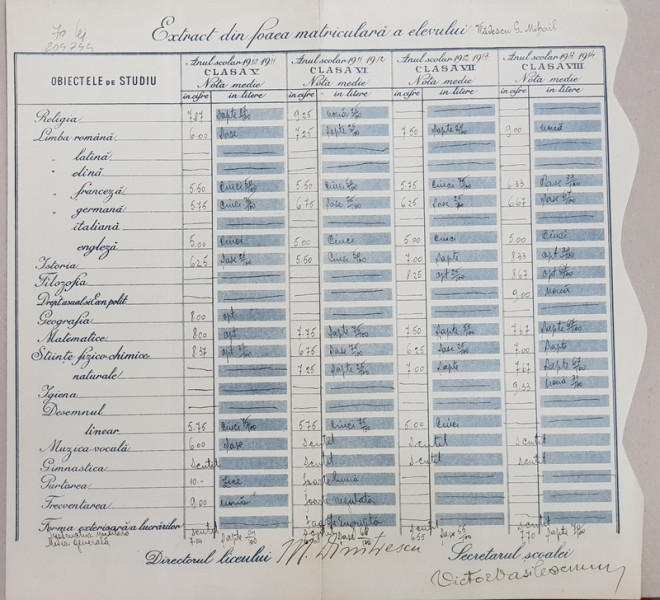 70 lej
209744
Extract din foaea matriculară a elevului Vlădescu G. Mihail
OBIECTELE DE STUDIU
Anul scolar 1910 1911 Anul scolar 1911 1912 Anul scolar 1912 1913 Anul scolar 1913 1914
CLASA V. CLASA VI CLASA VII CLASA VIII
Nota medie Nota medie Nota medie Nota medie
in cifre in litere in cifre in litere in cifre in litere in cifre in litere
Religia 7.87 Șapte 87/100 9.25 nouă 25/100
Limba română 6.00 Șase 7.25 Șapte 25/100 7.50 Șapte 50/100 9.00 nouă
" latină
" elină
" franceză 5.50 Cinci 50/100 5.50 Cinci 50/100 5.75 Cinci 75/100 6.33 Șase 33/100
" germană 5.75 Cinci 75/100 6.75 Șase 75/100 6.25 Șase 25/100 6.67 Șase 67/100
italiană
engleză 5.00 Cinci 5.00 Cinci 5.00 Cinci 5.00 Cinci
Istoria 6.25 Șase 25/100 5.50 Cinci 50/100 7.00 Șapte 8.33 opt 33/100
Filozofia 8.25 opt 25/100 8.67 opt 67/100
Drept usual si Ec.n polit 9.00 nouă
Geografia 8.00 opt
Matematice 8.00 opt 7.75 Șapte 75/100 7.50 Șapte 50/100 7.67 Șapte 67/100
Stiințe fizico-chimice 8.37 opt 37/100 6.75 Șase 75/100 6.25 Șase 25/100 7.00 Șapte
naturale 7.25 Șapte 25/100 7.00 Șapte 7.67 Șapte 67/100
Igiena 9.33 nouă 33/100
Desemnul
linear 5.75 Cinci 75/100 5.75 Cinci 75/100 5.00 Cinci
Muzica vocală 6.00 Șase scutit scutit scutit
Gimnastica scutit scutit scutit scutit
Purtarea 10.- Zece foarte bună
Frecventarea 9.00 nouă foarte regulată
Forma exterioară a lucrărilor foarte îngrijită
Instrucția militară scutit scutit scutit scutit
Media generală 7.04 Șapte 04/100 Șase 6.55 Șase 55/100 7.70 Șapte 70/100
Directorul liceului M. Dimitrescu Secretarul școalei
Victor Vasilescu